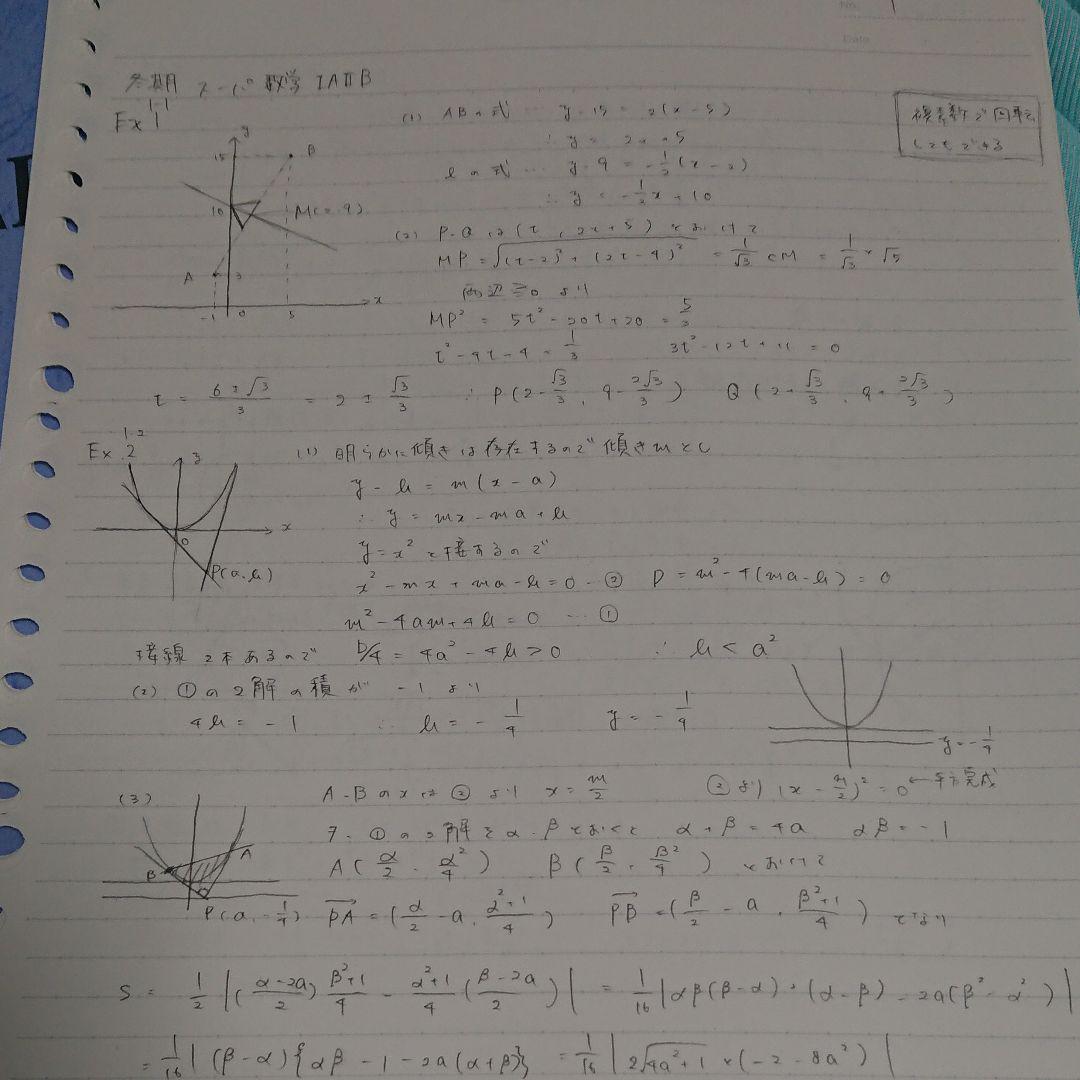 No. 1
Date
冬期 スーパー数学 ⅠAⅡB
Ex 1 1-1
複素数で回転
しても できる
(1) ABの式 … y-15 = 2(x-5)
∴ y = 2x+5
lの式 … y-9 = -1/2(x-2)
∴ y = -1/2x+10
y
15
B
10
M(2,9)
A
3
-1 0 5 x
(2) P・Qは(t, 2t+5) とおけて
MP = √((t-2)²+(2t-4)²) = 1/√3 CM = 1/√3 × √5
両辺≧0 より
MP² = 5t²-20t+20 = 5/3
t²-4t-4 = 1/3 3t²-12t+11 = 0
t = (6±√3)/3 = 2±√3/3 ∴ P(2-√3/3, 9-2√3/3) Q(2+√3/3, 9+2√3/3)
Ex 2 1-2
(1) 明らかに傾きは存在するので 傾きmとし
y-b = m(x-a)
∴ y = mx-ma+b
y=x² と接するので
x²-mx+ma-b=0 … ② D = m²-4(ma-b) = 0
m²-4am+4b=0 … ①
y
x
O
P(a,b)
接線2本あるので D/4 = 4a²-4b>0 ∴ b<a²
(2) ①の2解の積が -1 より
4b = -1 ∴ b = -1/4 y = -1/4
y=-1/4
(3) A・Bのxは②より x = m/2 ②より (x-m/2)²=0 ←平方完成
又、①の2解をα・βとおくと α+β=4a αβ=-1
A(α/2, α²/4) B(β/2, β²/4) とおけて
A
B
P(a, -1/4) PA→ = (α/2-a, (α²+1)/4) PB→ = (β/2-a, (β²+1)/4) であり
S = 1/2|((α-2a)/2)(β²+1)/4 - (α²+1)/4((β-2a)/2)| = 1/16|αβ(β-α)+(α-β)-2a(β²-α²)|
= 1/16|(β-α){αβ-1-2a(α+β)}| = 1/16|2√(4a²+1) × (-2-8a²)|